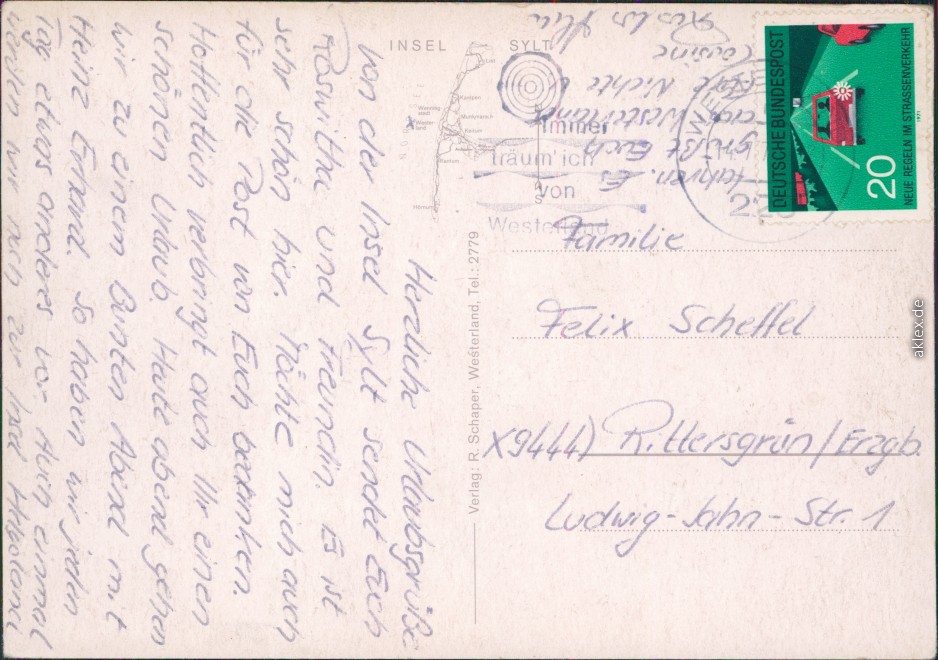 INSEL SYLT
List
Kampen
Munkmarsch
Keitum
Rantum
Hörnum
Herzliche Urlaubsgrüße
von der Insel Sylt sendet Euch
Roswitha und Freundin. Es ist
sehr schön hier. Möchte mich auch
für die Post von Euch bedanken.
Hoffentlich verbringt auch Ihr einen
schönen Urlaub. Heute abend gehen
wir zu einem Bunten Abend mit
Heinz Erhard. So haben wir jeden
Tag etwas anderes vor. Auch einmal
werden wir noch zur Insel Helgoland
fahren. Es
grüßt Euch
aus Westerland
Eure Nichte u.
Cousine
Immer
träum' ich
von
Westerland
DEUTSCHE BUNDESPOST
20
NEUE REGELN IM STRASSENVERKEHR
1971
Familie
Felix Scheffel
X9444) Rittersgrün/Erzgb.
Ludwig-Jahn-Str. 1
Verlag: R. Schaper, Westerland, Tel.: 2779
aklex.de